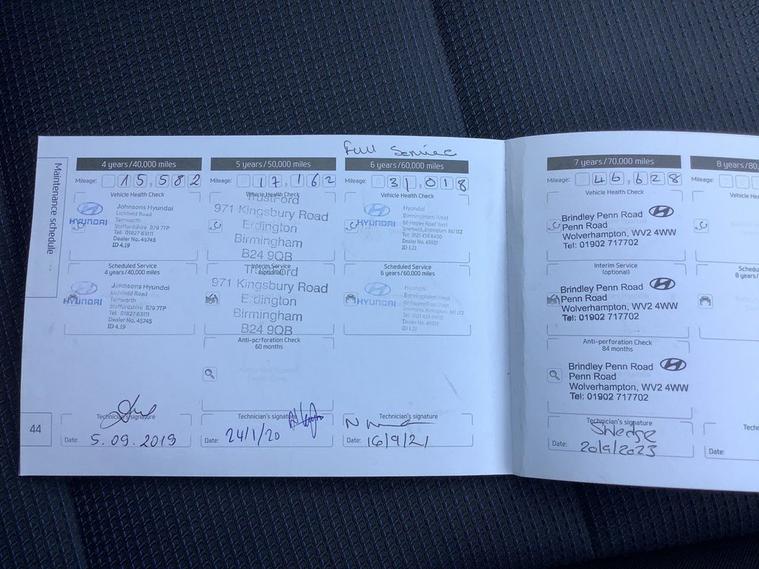 Full Service
Maintenance schedule
4 years/40,000 miles
Mileage: 15,582
Vehicle Health Check
Johnsons Hyundai
Lichfield Road
Tamworth
Staffordshire B79 7TP
Tel: 01827 63111
Dealer No. 45745
ID 4.19
HYUNDAI
Scheduled Service
4 years/40,000 miles
Johnsons Hyundai
Lichfield Road
Tamworth
Staffordshire B79 7TP
Dealer No. 45745
ID 4.19
HYUNDAI
Technician's signature
Date: 5.09.2019
44
5 years/50,000 miles
Mileage: 17,162
Vehicle Health Check
971 Kingsbury Road
Erdington
Birmingham
B24 9QB
Interim Service
(optional)
971 Kingsbury Road
Erdington
Birmingham
B24 9QB
Anti-perforation Check
60 months
Technician's signature
Date: 24/1/20
6 years/60,000 miles
Mileage: 31,018
Vehicle Health Check
Hyundai
HYUNDAI
Scheduled Service
6 years/60,000 miles
Hyundai
HYUNDAI
Technician's signature
Date: 16/9/21
7 years/70,000 miles
Mileage: 46,628
Vehicle Health Check
Brindley Penn Road
Penn Road
Wolverhampton, WV2 4WW
Tel: 01902 717702
Interim Service
(optional)
Brindley Penn Road
Penn Road
Wolverhampton, WV2 4WW
Tel: 01902 717702
Anti-perforation Check
84 months
Brindley Penn Road
Penn Road
Wolverhampton, WV2 4WW
Tel: 01902 717702
Technician's signature
Date: 20/9/2023
8 years/80,
Mileage:
Vehicle He
Schedu
8 years/8
Techn
Date: